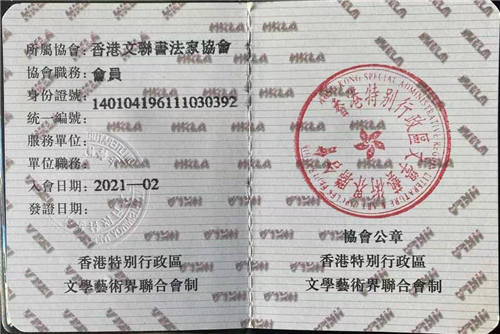 所屬協會: 香港文聯書法家協會
協會職務: 會員
身份證號: 140104196111030392
統一編號:
服務單位:
單位職務:
入會日期: 2021—02
發證日期:
香港特别行政區
文學藝術界聯合會制
HKLA
香港特别行政區文學藝術界聯合會
協會公章
香港特别行政區
文學藝術界聯合會制